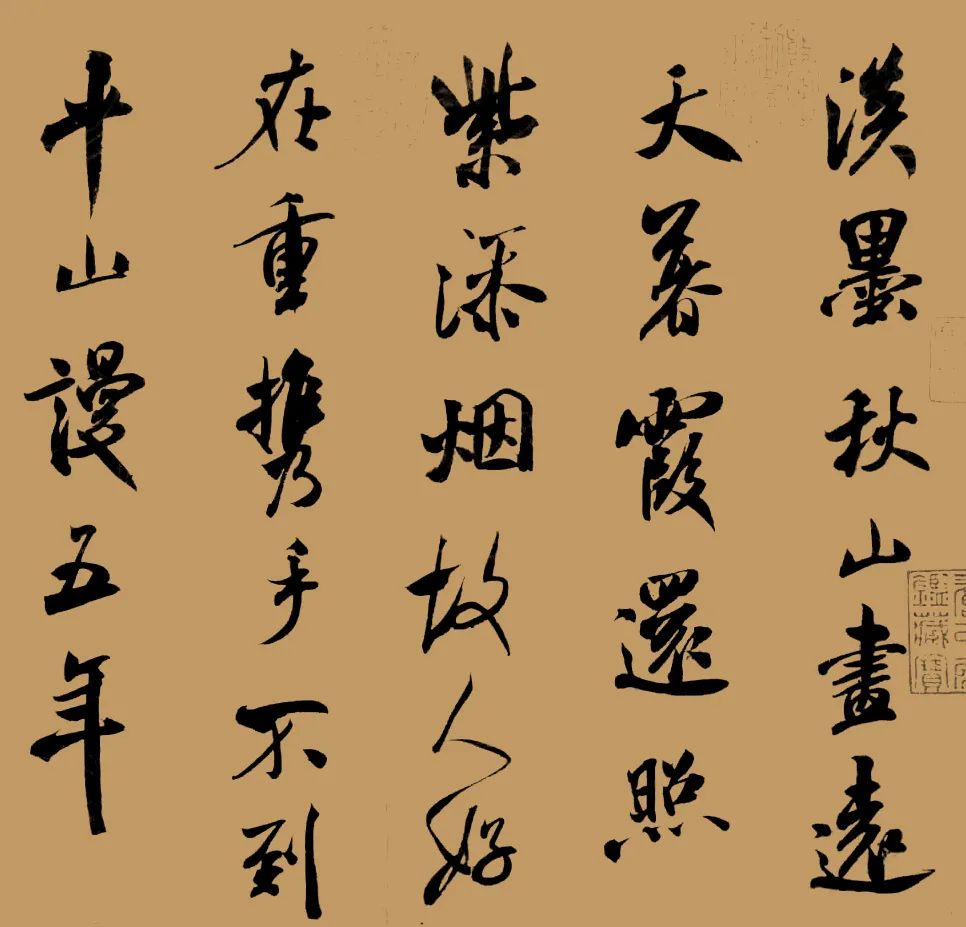 淡墨秋山畫遠
天暮霞還照
紫添烟故人好
在重携手不到
平山謾五年
鑑藏寶